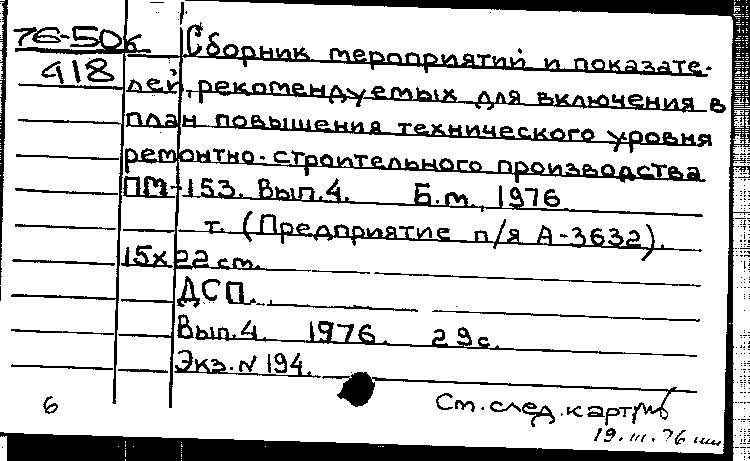 76-50к
418
Сборник мероприятий и показате-
лей, рекомендуемых для включения в
план повышения технического уровня
ремонтно-строительного производства
ПМ-153. Вып.4. Б.м., 1976
т. (Предприятие п/я А-3632).
15х22 см.
ДСП.
Вып.4. 1976. 29с.
Экз. N 194.
6
См. след. карт
19.III.76